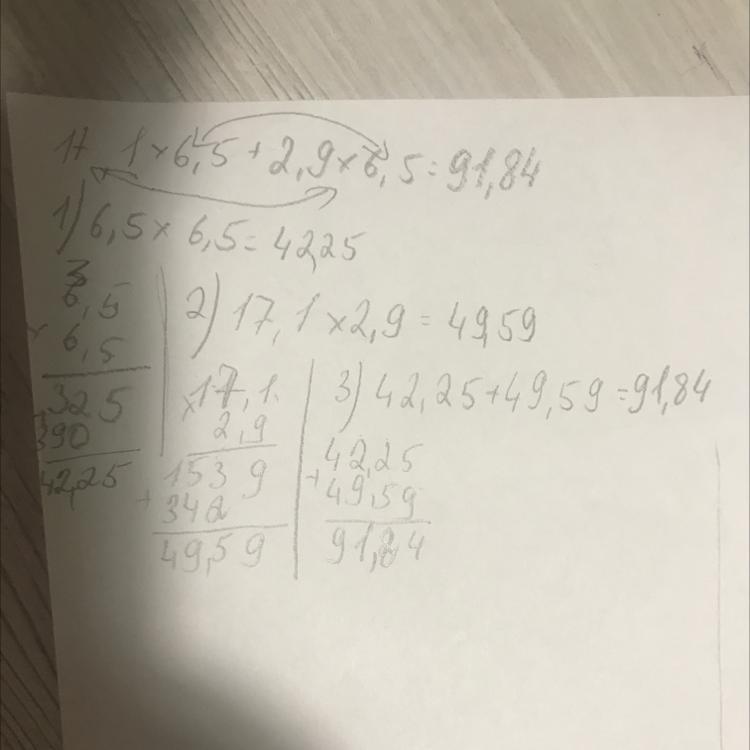 17,1×6,5+2,9×6,5=91,84
1) 6,5×6,5=42,25
3
6,5
× 6,5
325
390
42,25
2) 17,1×2,9=49,59
×17,1
2,9
1539
+342
49,59
3) 42,25+49,59=91,84
42,25
+49,59
91,84